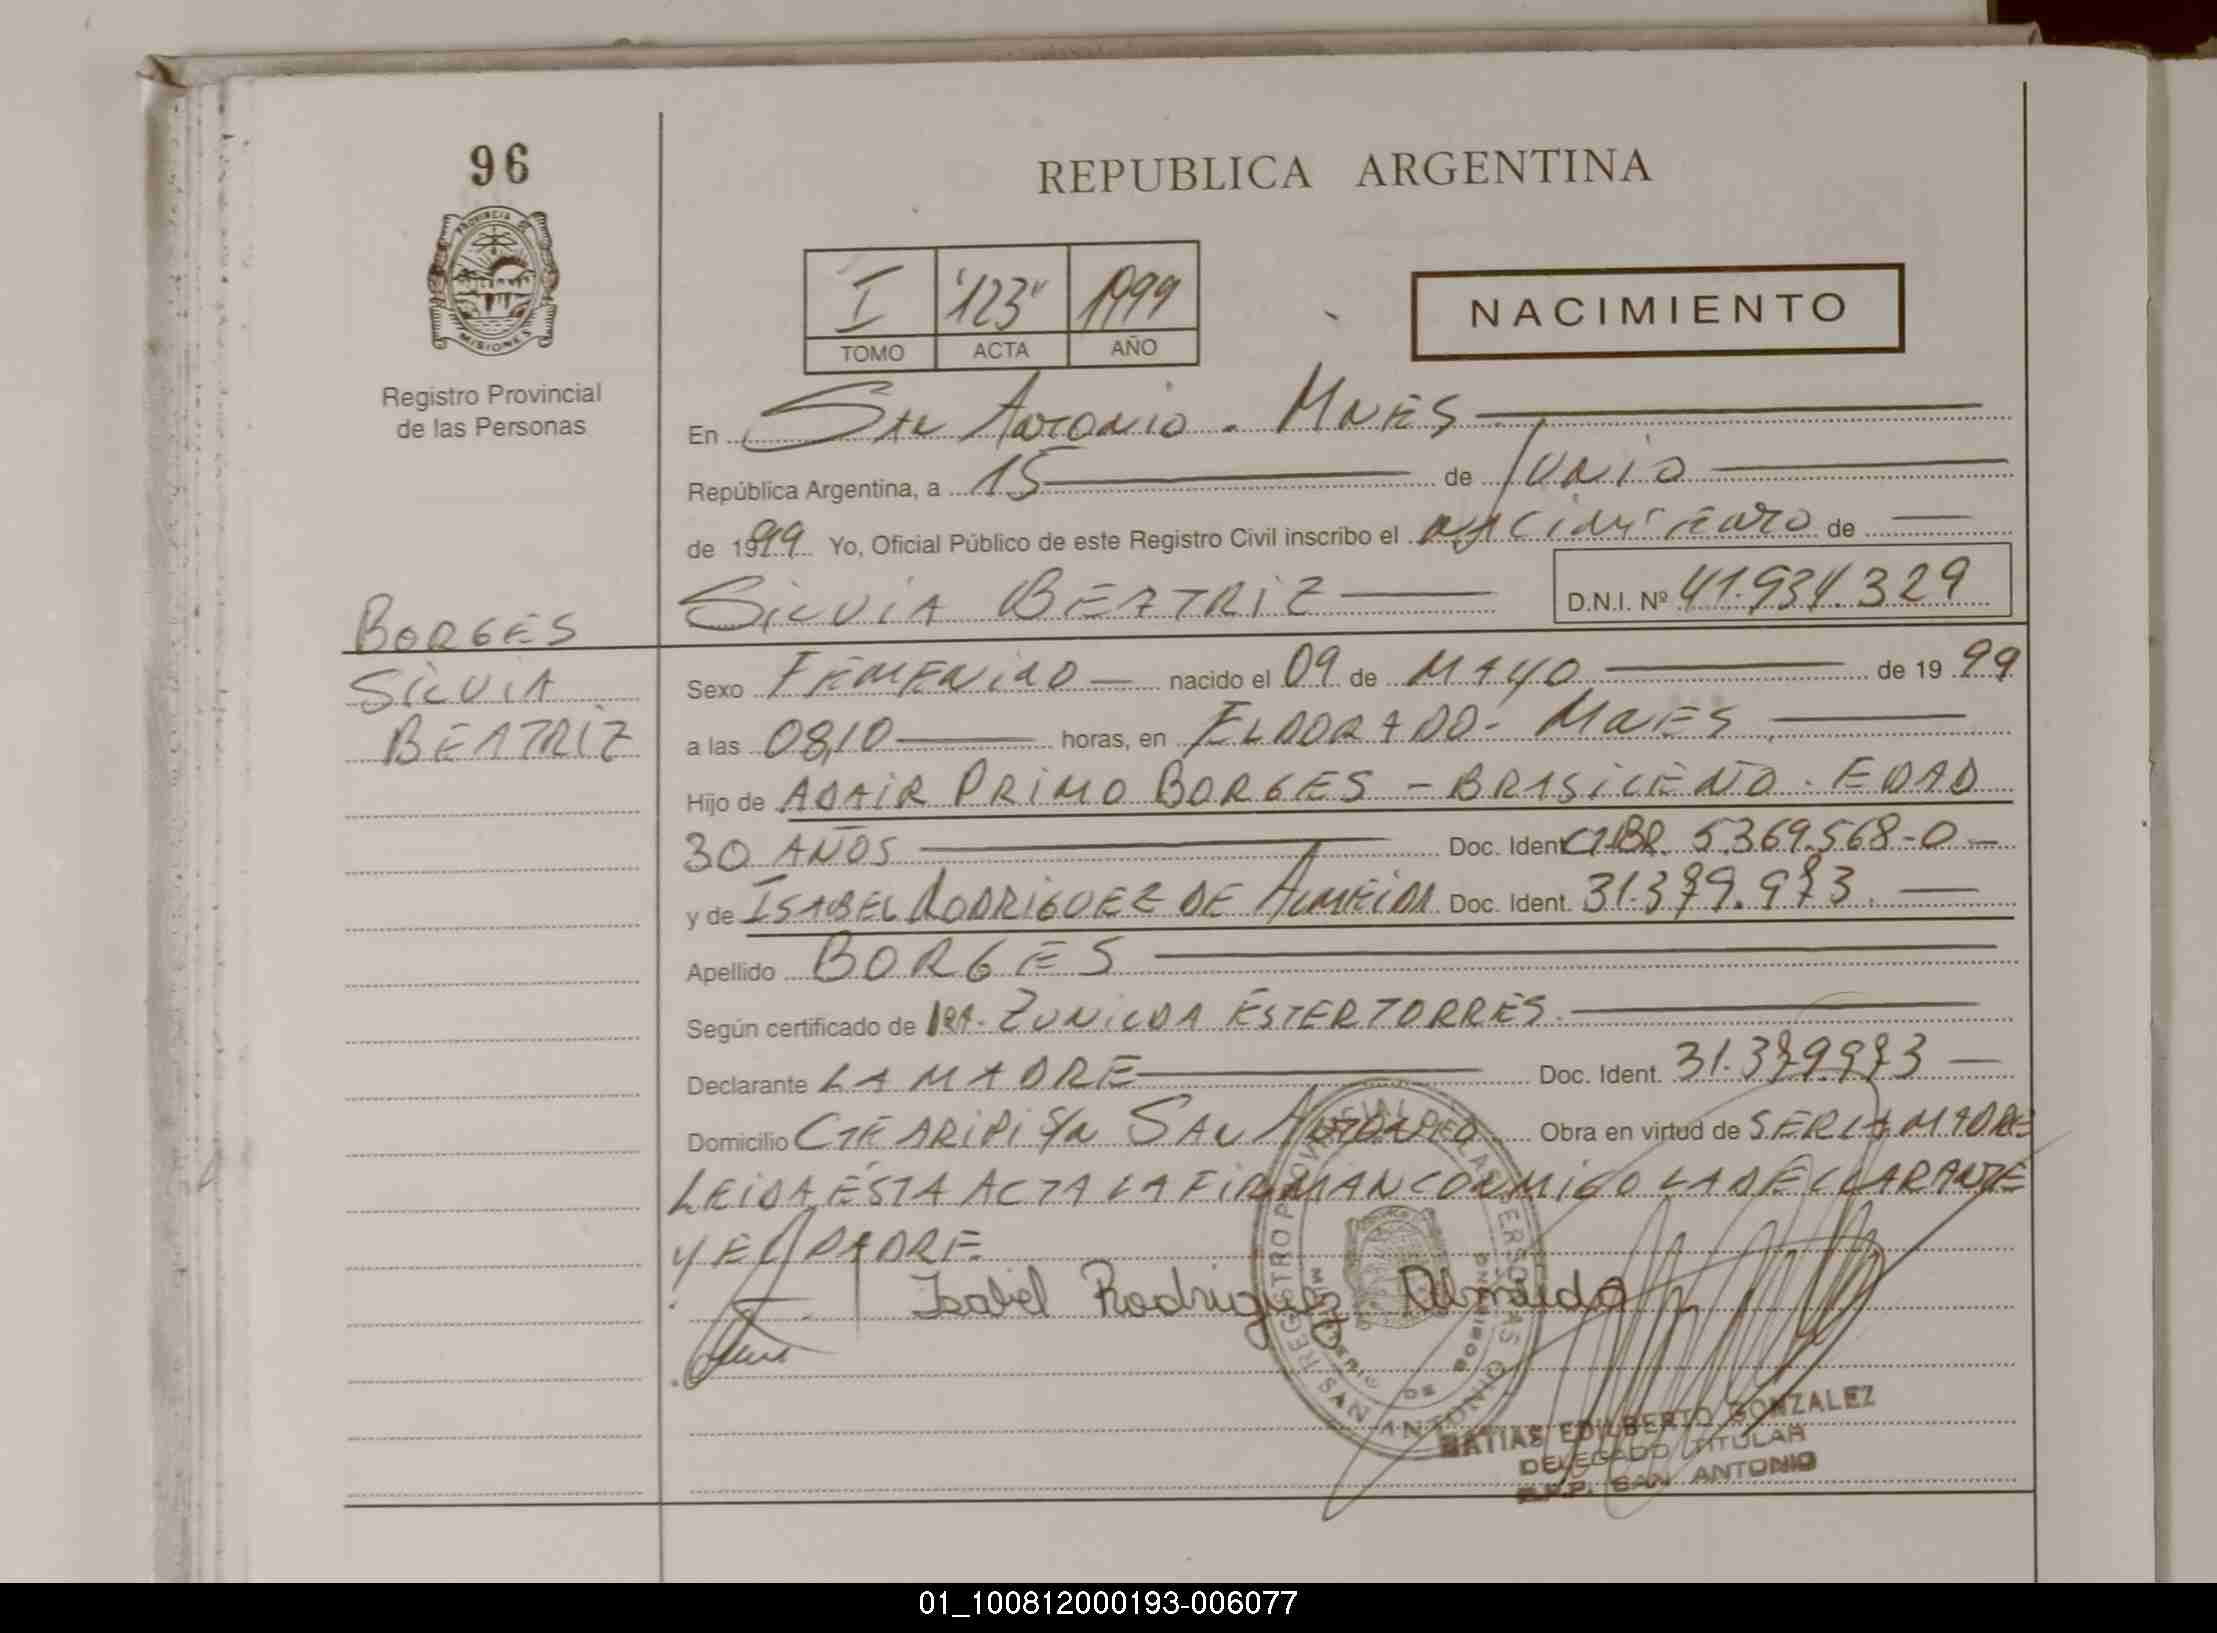 96
REPUBLICA ARGENTINA
PROVINCIA DE
MISIONES
Registro Provincial
de las Personas
I "123" 1999
TOMO ACTA AÑO
NACIMIENTO
En San Antonio - Mnes
República Argentina, a 15 de Junio
de 1999 Yo, Oficial Público de este Registro Civil inscribo el nacimiento de
SILVIA BEATRIZ D.N.I. Nº 41.934.329
BORGES
SILVIA
BEATRIZ
Sexo FEMENINO nacido el 09 de MAYO de 1999
a las 08,10 horas, en ELDORADO - MNES
Hijo de ADAIR PRIMO BORGES - BRASILEÑO. EDAD
30 AÑOS Doc. Ident. C.I.BR. 5.369.568-0
y de ISABEL RODRIGUEZ DE ALMEIDA Doc. Ident. 31.379.973
Apellido BORGES
Según certificado de ZUNILDA ESTER TORRES
Declarante LA MADRE Doc. Ident. 31.379.973
Domicilio CTE ARIPI S/N SAN ANTONIO Obra en virtud de SER LA MADRE
LEIDA ÉSTA ACTA LA FIRMAN CONMIGO LA DECLARANTE
Y EL PADRE
Isabel Rodriguez Almeida
REGISTRO PROVINCIAL DE LAS PERSONAS
MINISTERIO DE GOBIERNO
SAN ANTONIO
MATIAS EDILBERTO GONZALEZ
DELEGADO TITULAR
R.P.P. SAN ANTONIO
01_100812000193-006077